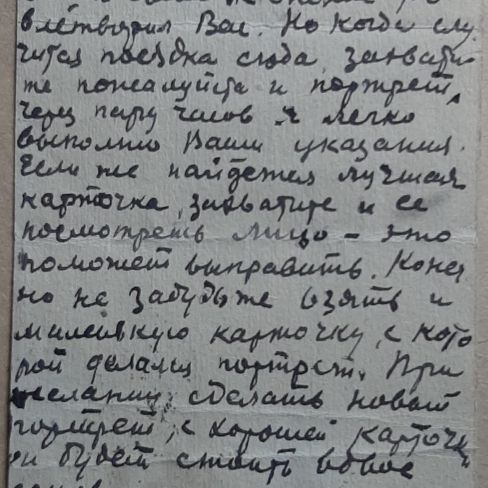 влетворил Вас. Но когда слу
чится поездка сюда, захвати
же пожалуйста и портрет,
через пару часов я легко
выполню Ваши указания.
Если же найдется лучшая
карточка, захватите и ее
посмотреть лицо – это
поможет выправить. Конеч
но не забудьте взять и
маленькую карточку, с кото
рой делали портрет. При
желании сделать новый
портрет, с хорошей карточк
и он будет стоить вдвое